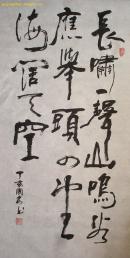 長嘯一聲山鳴谷
應舉頭四望
海闊天空